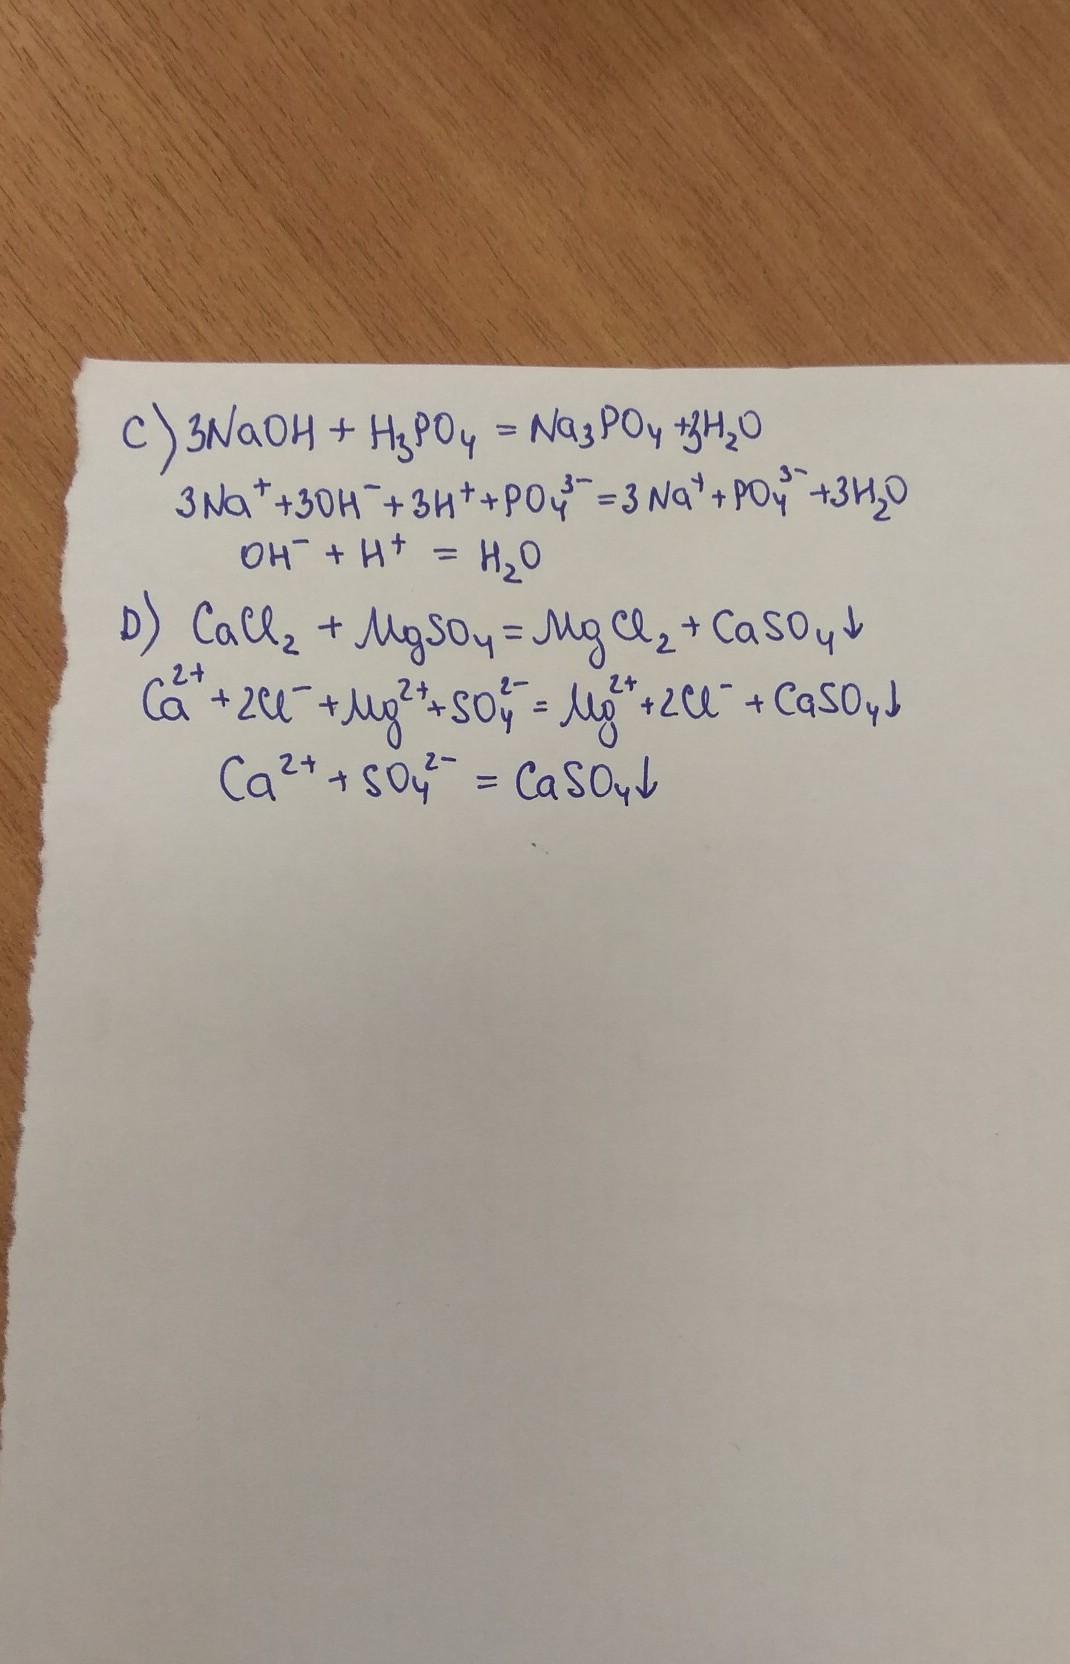 C) 3NaOH + H₃PO₄ = Na₃PO₄ + 3H₂O
3Na⁺ + 3OH⁻ + 3H⁺ + PO₄³⁻ = 3Na⁺ + PO₄³⁻ + 3H₂O
OH⁻ + H⁺ = H₂O
D) CaCl₂ + MgSO₄ = MgCl₂ + CaSO₄↓
Ca²⁺ + 2Cl⁻ + Mg²⁺ + SO₄²⁻ = Mg²⁺ + 2Cl⁻ + CaSO₄↓
Ca²⁺ + SO₄²⁻ = CaSO₄↓